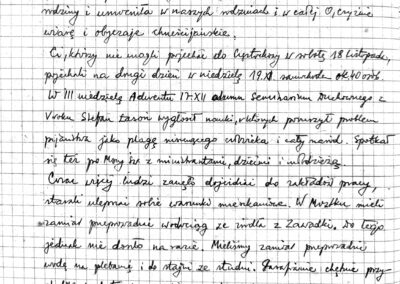 rodziny i umocniła w naszych rodzinach i w całej Ojczyźnie
wiarę i obyczaje chrześcijańskie.
Ci, którzy nie mogli pojechać do Częstochowy w sobotę 18 listopada,
pojechali na drugi dzień w niedzielę 19.XI samochodem ok. 40 osób.
W III niedzielę Adwentu 17-XII alumn Seminarium Duchownego z
Stefan wygłosił nauki, w których poruszył problem
pijaństwa jako plagę niszczącą człowieka i cały naród. Spotkał
się też po Mszy św z ministrantami, dziećmi i młodzieżą.
Coraz więcej ludzi zaczęło dojeżdżać do zakładów pracy,
starali ulepszać sobie warunki mieszkaniowe. W mieli
zamiar przeprowadzić wodociąg ze źródła z Zawadki. Do tego
jednak nie doszło na razie. Mieliśmy zamiar przeprowadzić
wodę na plebanię i do stajni ze studni. Parafianie chętnie przy-